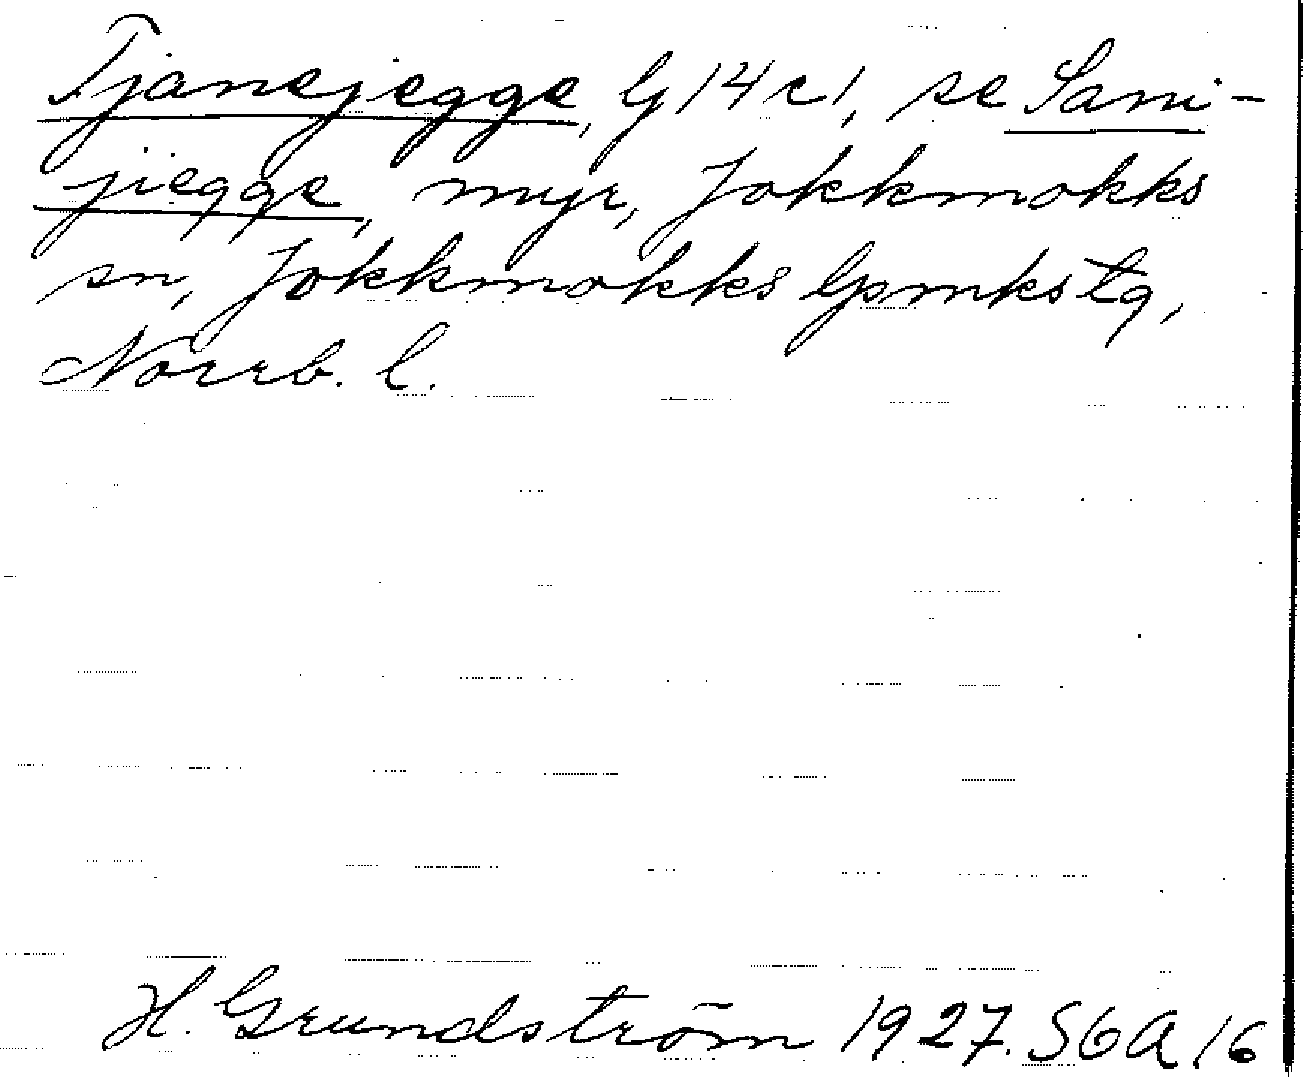 Tjanejegge, G14c1, se Sani-
jiegge, myr, Jokkmokks
sn, Jokkmokks lpmkstg,
Norrb. l.
H. Grundström 1927. S6A16